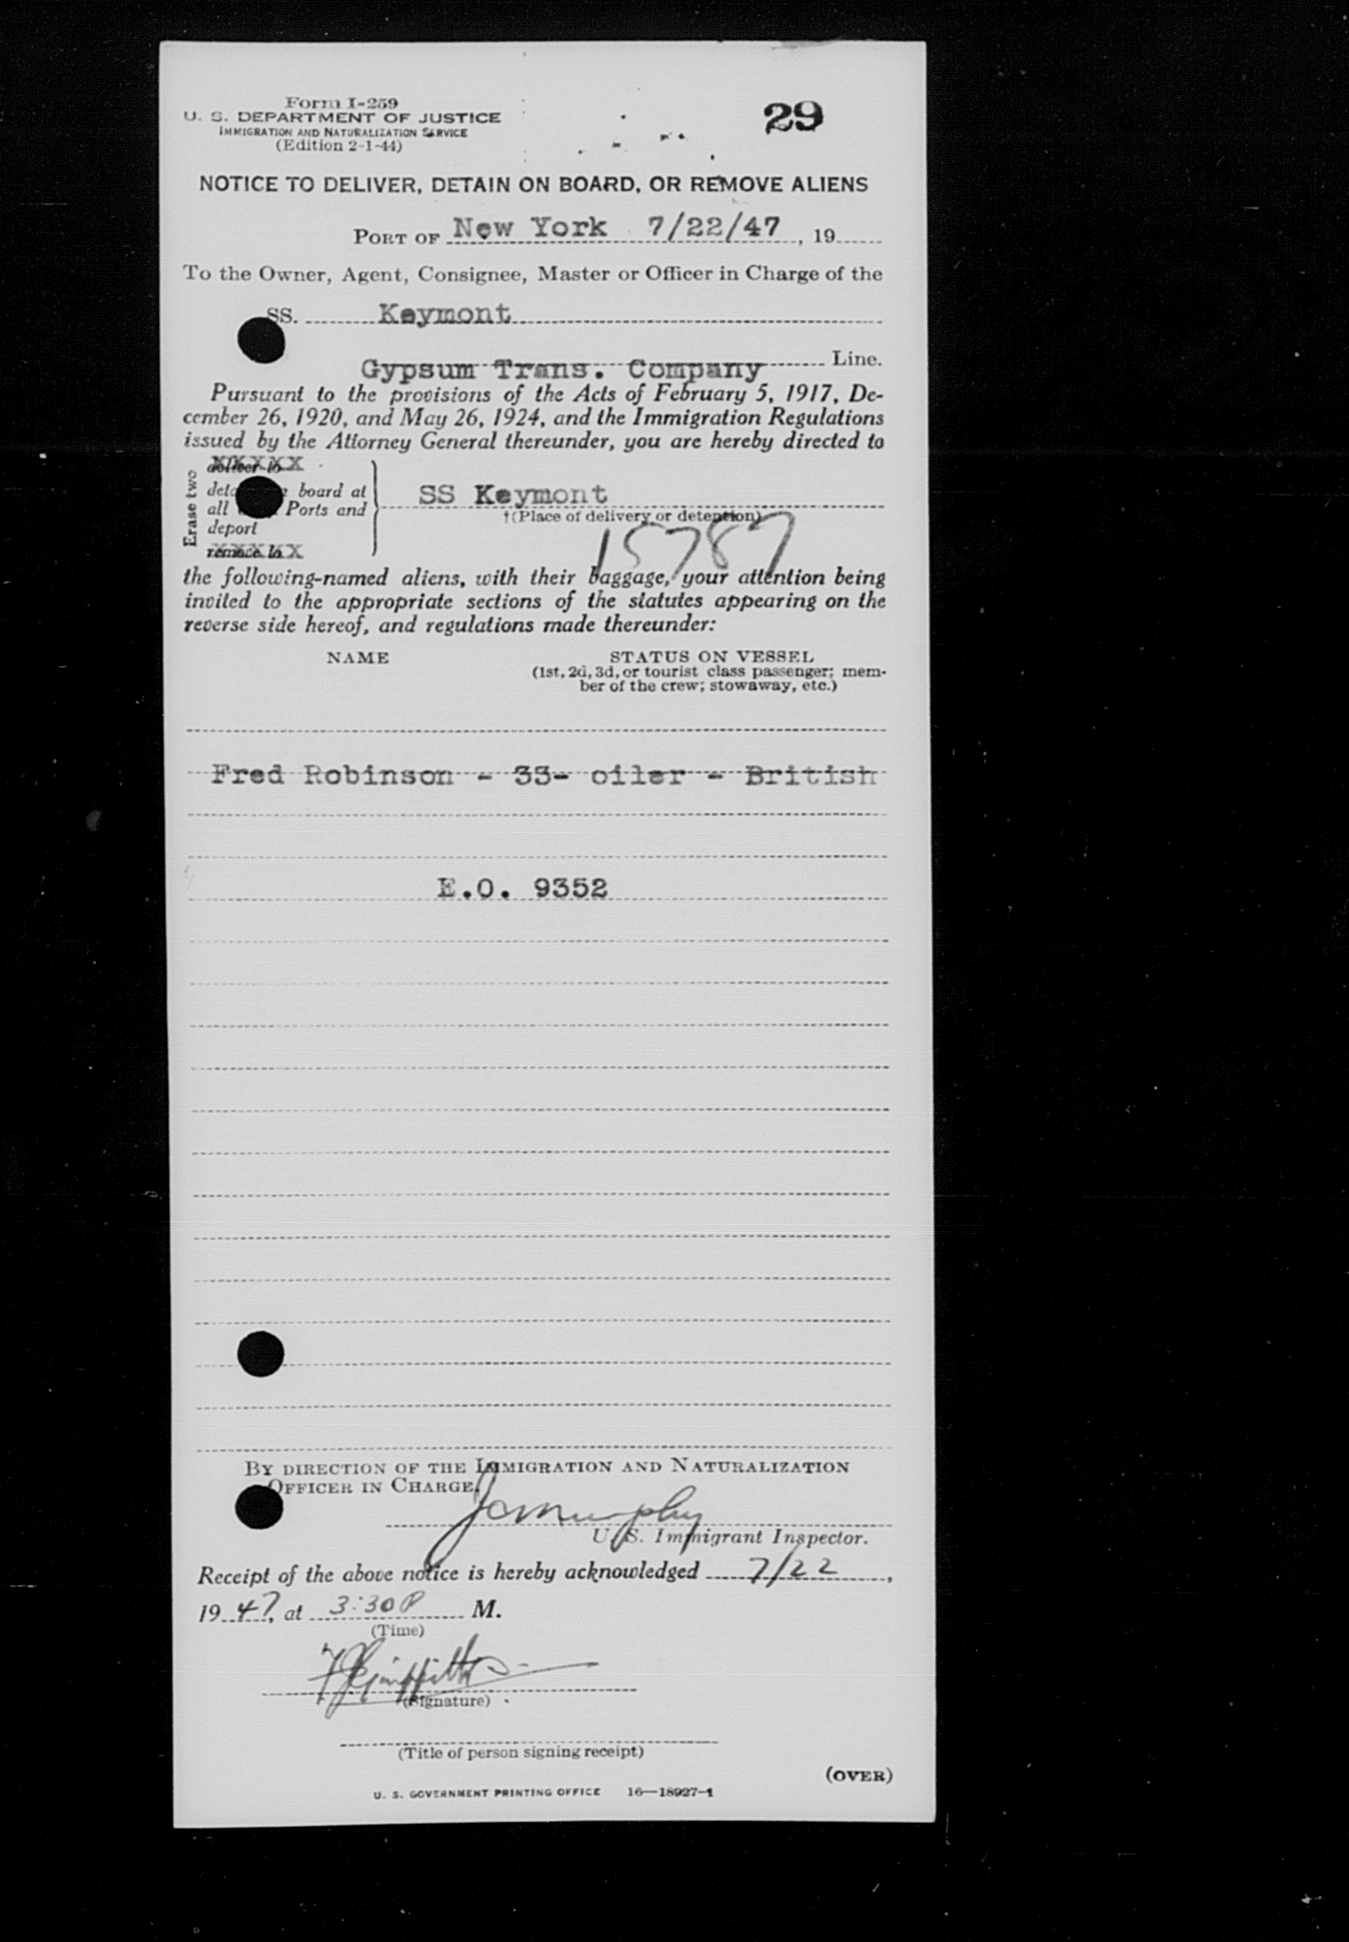 Form I-259
U. S. DEPARTMENT OF JUSTICE
IMMIGRATION AND NATURALIZATION SERVICE
(Edition 2-1-44)
29
NOTICE TO DELIVER, DETAIN ON BOARD, OR REMOVE ALIENS
PORT OF New York 7/22/47, 19
To the Owner, Agent, Consignee, Master or Officer in Charge of the
SS. Keymont
Gypsum Trans. Company Line.
Pursuant to the provisions of the Acts of February 5, 1917, De-
cember 26, 1920, and May 26, 1924, and the Immigration Regulations
issued by the Attorney General thereunder, you are hereby directed to
Erase two
deliver to
board at
all Ports and
deport
remove to
SS Keymont
†(Place of delivery or detention)
15787
the following-named aliens, with their baggage, your attention being
invited to the appropriate sections of the statutes appearing on the
reverse side hereof, and regulations made thereunder:
NAME STATUS ON VESSEL
(1st, 2d, 3d, or tourist class passenger; mem-
ber of the crew; stowaway, etc.)
Fred Robinson - 33- oiler - British
E.O. 9352
BY DIRECTION OF THE IMMIGRATION AND NATURALIZATION
OFFICER IN CHARGE.
JC Murphy
U. S. Immigrant Inspector.
Receipt of the above notice is hereby acknowledged 7/22,
19 47, at 3:30 P M.
(Time)
Griffiths
(Signature)
(Title of person signing receipt)
(OVER)
U. S. GOVERNMENT PRINTING OFFICE 16—18927-1